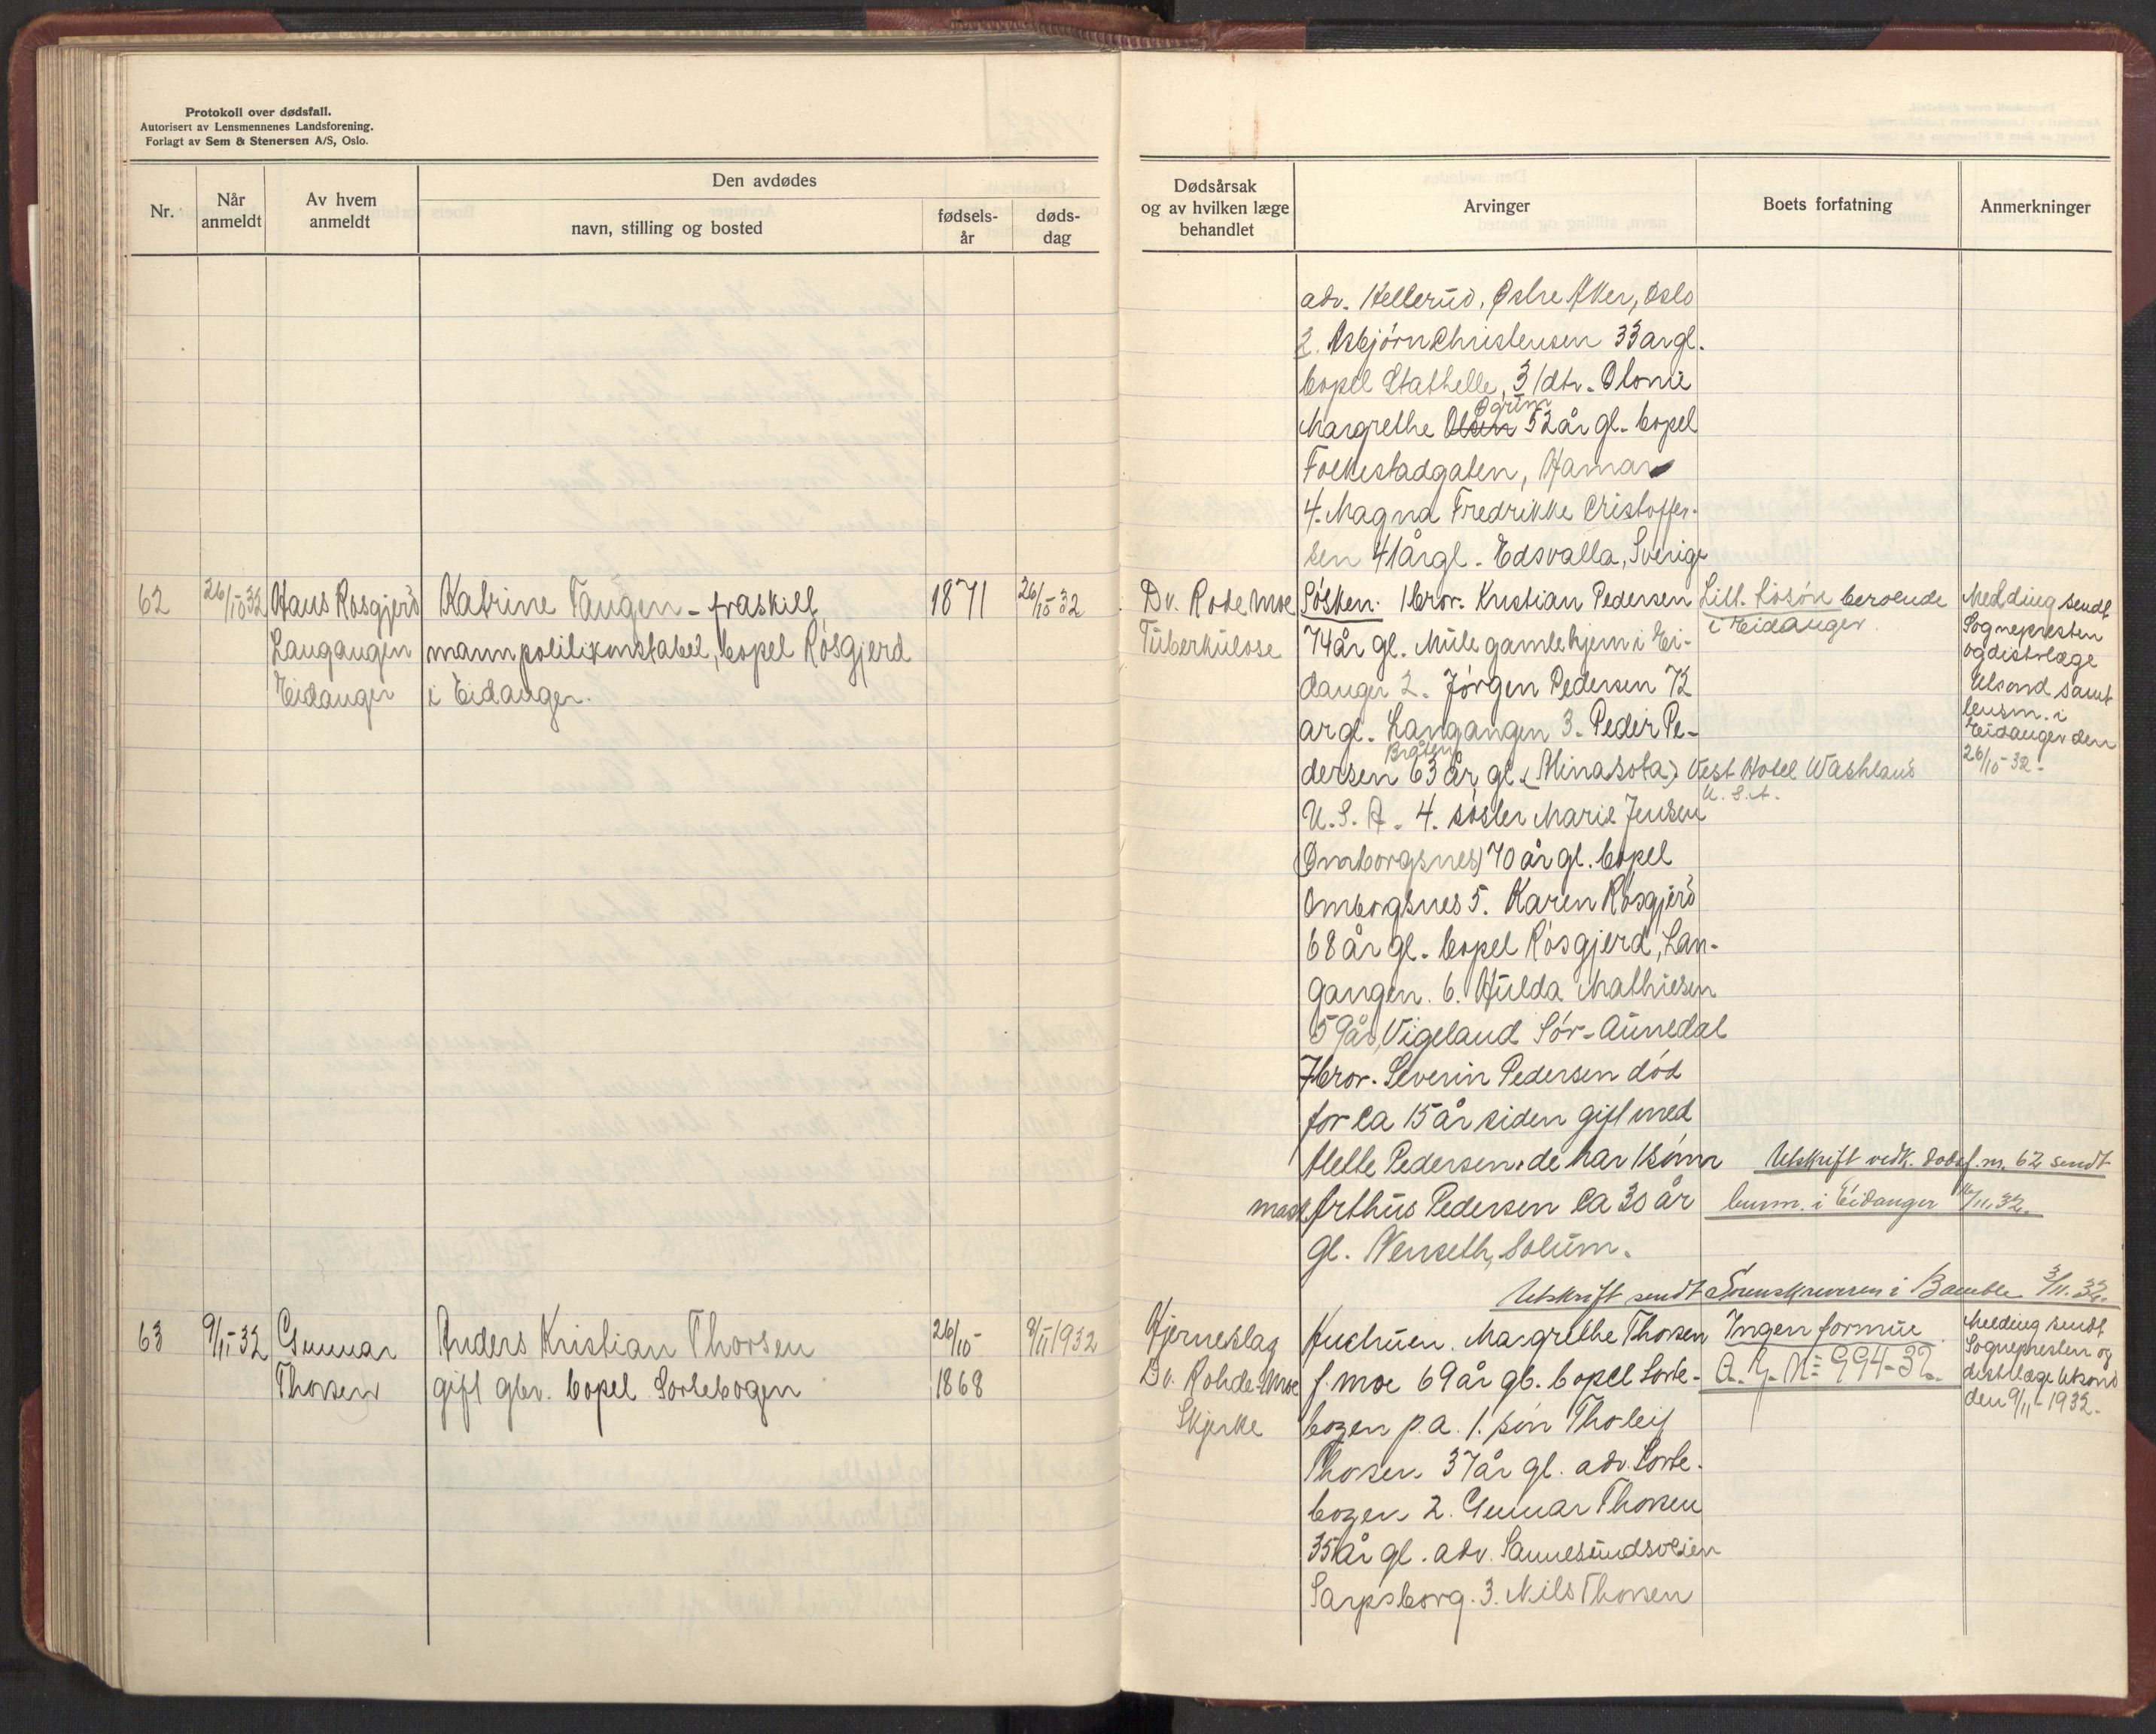 Protokoll over dødsfall.
Autorisert av Lensmennenes Landsforening.
Forlagt av Sem & Stenersen A/S, Oslo.
Nr.
Når anmeldt
Av hvem anmeldt
Den avdødes
navn, stilling og bosted
fødsels-år
døds-dag
Dødsårsak og av hvilken læge behandlet
Arvinger
Boets forfatning
Anmerkninger
adr. Hellerud, Østre Aker, Oslo
2. Asbjørn Christensen 33 ar gl.
bopel Stathelle, 3 1 dtr. Olonie
Ogrim
Margrethe Olsen 52 år gl. bopel
Folkestadgaten, Hamar
4. Magna Fredrikke Cristoffer-
sen 41 år gl. Edsvalla, Sverige
62
26/10-32
Hans Rosgjerd
Langangen
Eidanger
Katrine Tangen - fraskilt,
mann politikonstabel, bopel Røsgjerd
i Eidanger.
1871
26/10-32
Dr. Rode Moe
Tuberkulose
Søsken. 1 bror. Kristian Pedersen
74 år gl. Mule gamlehjem i Ei-
danger 2. Jørgen Pedersen 72
ar gl. Langangen 3. Peder Pe-
Bråten
dersen 63 år gl. (Minasota) Vest Hotel Washland
U. S. A.
U. S. A. 4. søster Marie Jensen
(Omborgsnes) 70 år gl. bopel
Ombogsnes 5. Karen Røsgjerd
68 år gl. bopel Røsgjerd, Lan-
gangen. 6. Hulda Mathiesen
59 år, Vigeland Sør-Aunedal
7 bror. Severin Pedersen død
for ca 15 år siden gift med
Helle Pedersen. de har 1 sønn
mask Arthus Pedersen ca 30 år
gl. Nenseth, Solum.
Litt. løsøre beroende
i Eidanger.
Utskrift vedk. dødsf. nr. 62 sendt
lensm. i Eidanger 16/11.32.
Melding sendt
Sognepresten
og distr læge
Ulsond samt
lensm. i
Eidanger den
26/10-32.
Utskrift sendt Sorenskriveren i Bamble 3/11.32.
63
9/11-32
Gunnar
Thorsen
Anders Kristian Thorsen
gift gbr. bopel Sortebogen
26/10-
1868
8/11 1932
Hjerneslag
Dr. Rohde-Moe
Skjerke
Huskuen. Margrethe Thorsen
f. moe 69 år gl. bopel Sorte-
bogen p.a. 1. søn Tholeif
Thorsen 37 år gl. adr. Sorte-
bogen 2. Gunnar Thorsen
35 år gl. adr. Sannesundsveien
Sarpsborg. 3. Nils Thorsen
Ingen formue
A. G. N= 994-32.
Melding sendt
Sognepresten og
distr læge Ulsond
den 9/11-1932.